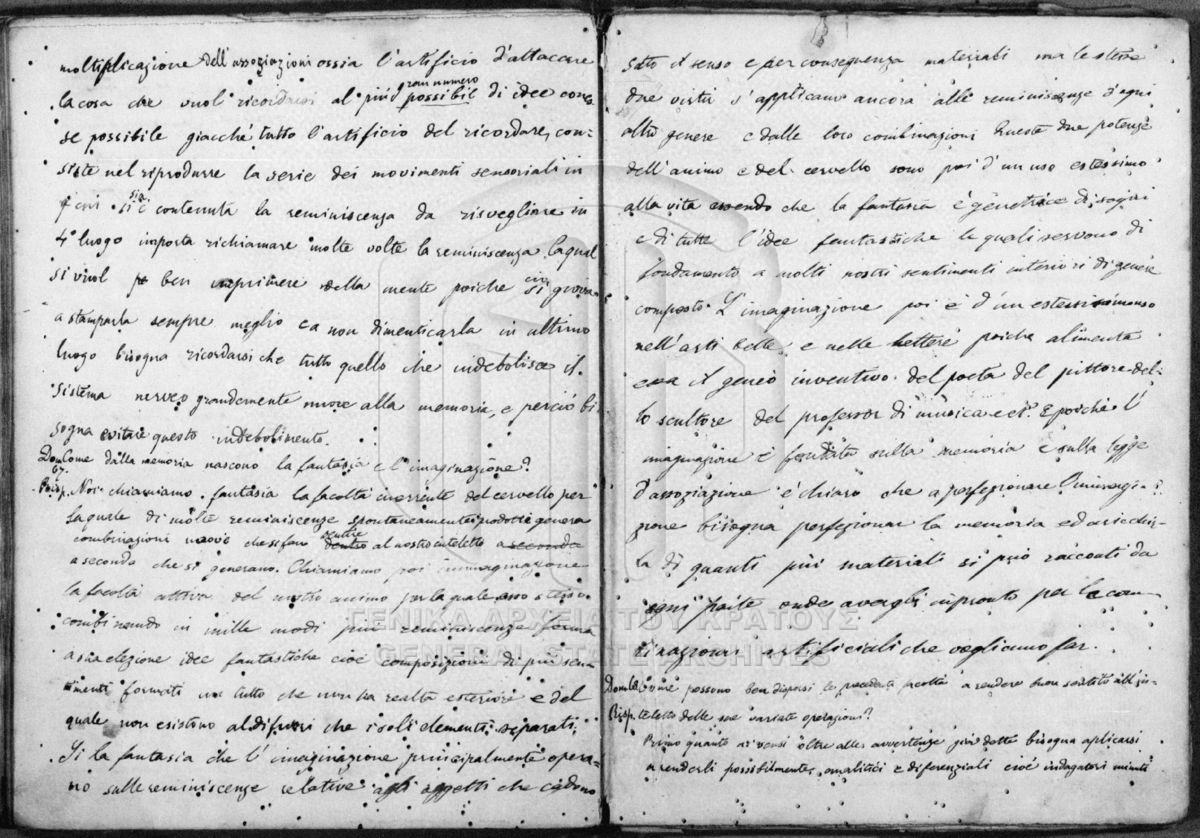 moltiplicazione dell'associazioni ossia l'artificio d'attaccare
gran numero
la cosa che vuol ricordarsi al più possibil di idee con
se possibile giacché tutto l'artificio del ricordare, con-
siste nel riprodurre la serie dei movimenti sensoriali in
sia
si è contenuta la reminiscenza da risvegliare in
4° luogo importa richiamare molte volte la reminiscenza la qual
si vuol ben imprimere nella mente poiche ciò si giova
a stamparla sempre meglio e a non dimenticarla in ultimo
luogo bisogna ricordarsi che tutto quello che indebolisce il
sistema nerveo grandemente nuoce alla memoria, e perciò bi-
sogna evitare questo indebolimento.
Dom Come dalla memoria nascono la fantasia e l'imaginazione?
67.
Risp. Noi chiamiamo fantasia la facoltà inerente del cervello per
la quale di molte reminiscenze spontaneamente riprodotte genera
combinazioni nuove che si fan sentire dentro al nostro inteletto a seconda
a secondo che si generano. Chiamiamo poi immaginazione
la facoltà attiva del nostro animo per la quale esso stesso
combinando in mille modi più reminiscenze forma
a sua elezione idee fantastiche cioè composizioni di più sen-
timenti formati un tutto che non ha realtà esteriori e del
quale non esistono al di fuori che i soli elementi separati.
Si la fantasia che l'imaginazione principalmente opera-
no sulle reminiscenze relative agli oggetti che cadono
sotto il senso e per conseguenza materiali ma le stesse
due virtù s'applicano ancora alle reminiscenze d'ogni
altro genere e dalle loro combinazioni Queste due potenze
dell'animo e del cervello sono poi d'un uso estessimo
alla vita essendo che la fantasia è genetrice di sogni
e di tutte l'idee fantastiche le quali servono di
fondamento a molti nostri sentimenti interiori di genere
composto. L'imaginazione poi è d'un
nell'arti belle, e nelle lettere poiche alimenta
essa il genio inventivo del poeta del pittore del-
lo scultore del professor di musica ec. E poiche l'
imaginazione è fondata sulla memoria e sulla legge
d'associazione è chiaro che a perfezionare l'imagi-
zione bisogna perfezionar la memoria ed aricchir-
la di quanti più materiali si può racconti da
ogni parte onde avergli in pronto per le com-
binazioni artificiali che vogliamo far.
Dom Come possono ben disporsi le precedenti facoltà a rendere buon servizio all'in-
Risp. teletto delle sue variate operazioni?
Primo quanto ai sensi oltre alle avvertenze già dette bisogna aplicarsi
a renderli possibilmente analitici e diferenziali cioè indagatori minuti
ΓΕΝΙΚΑ ΑΡΧΕΙΑ ΤΟΥ ΚΡΑΤΟΥΣ
GENERAL STATE ARCHIVES